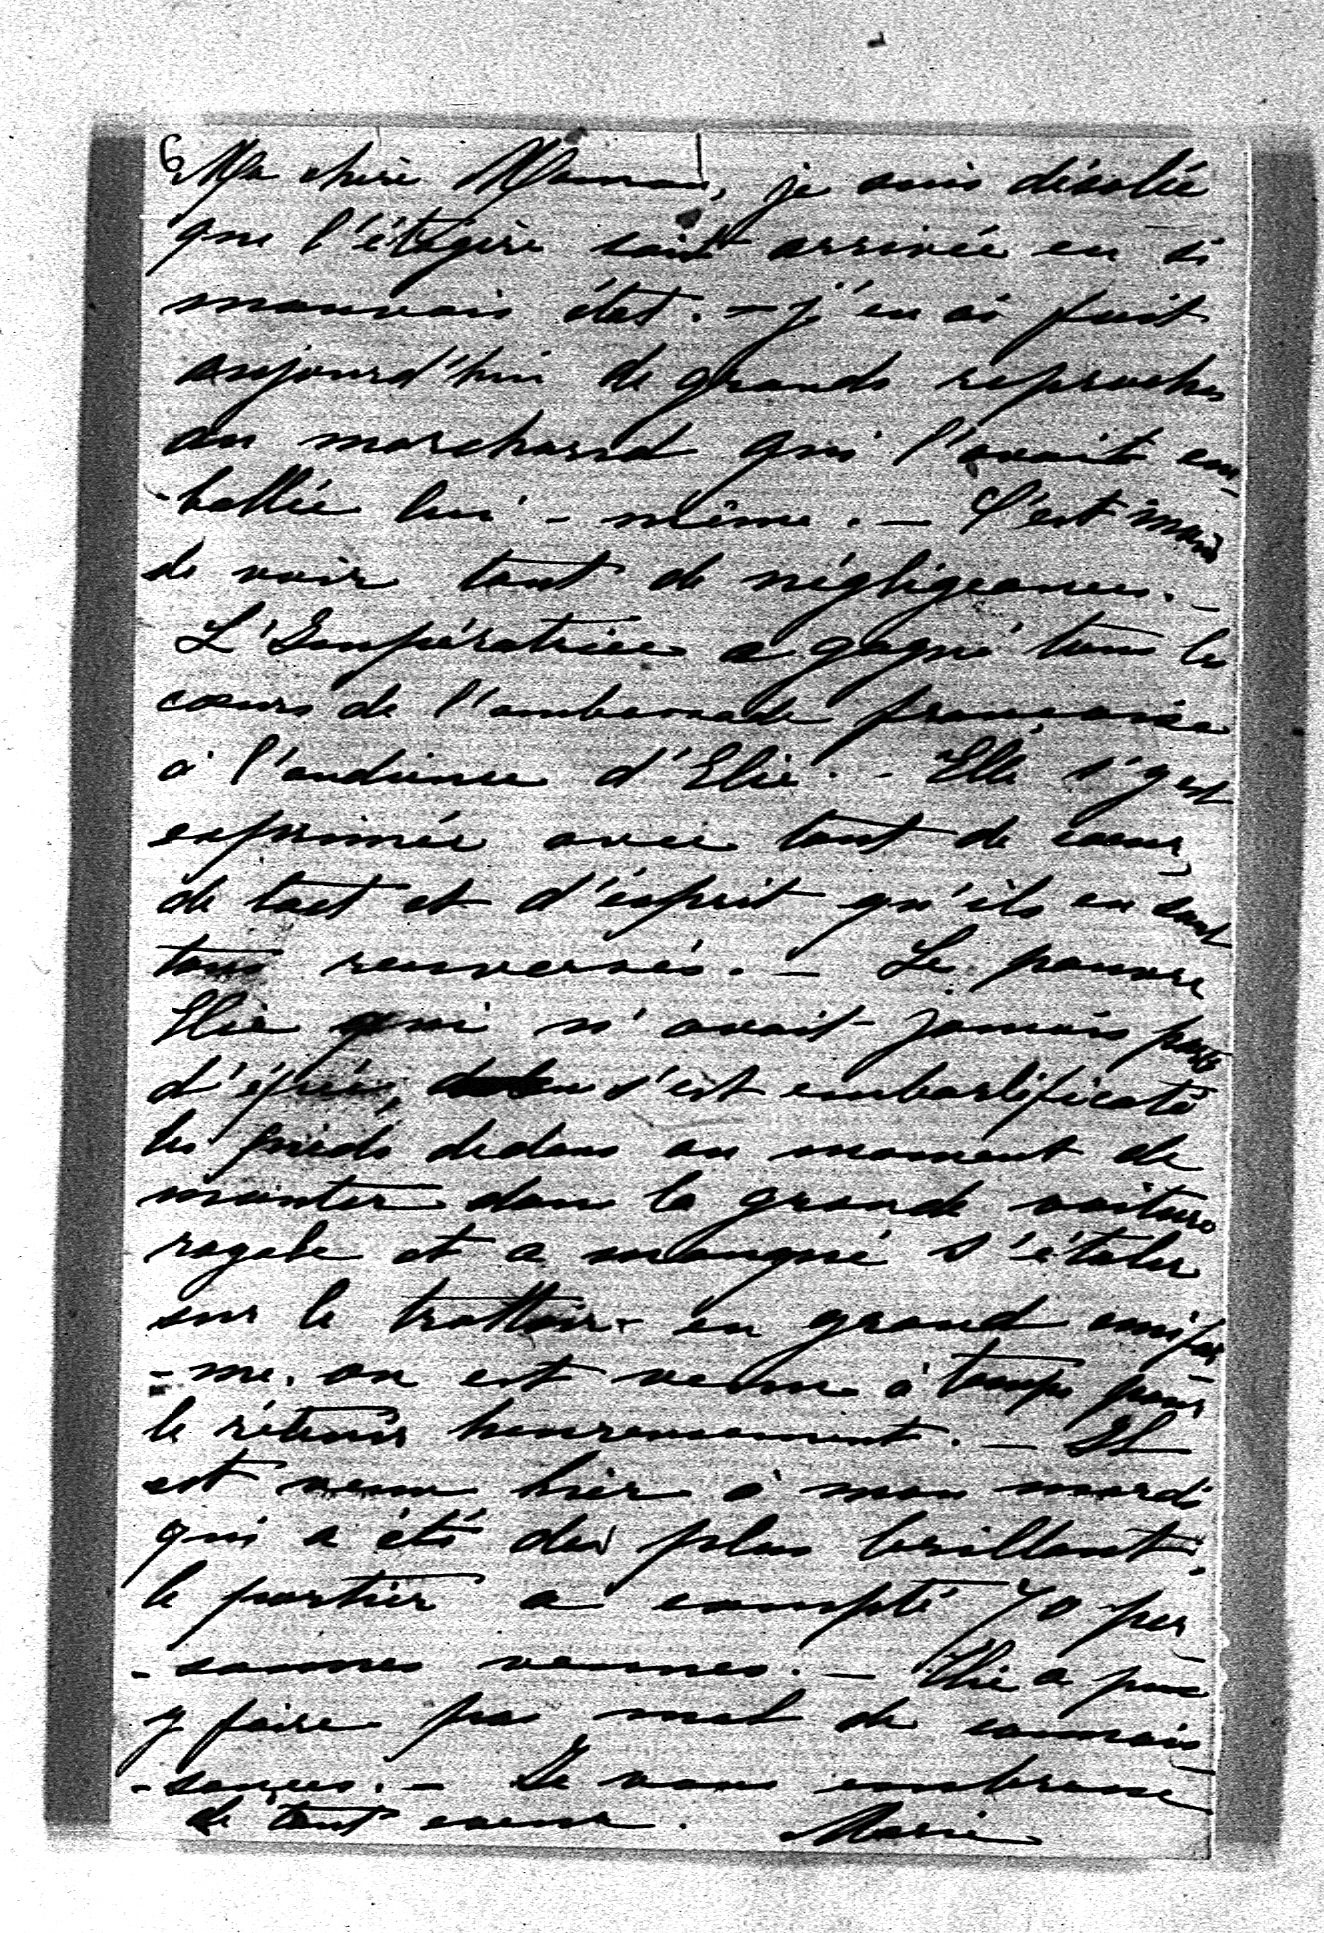 6
Ma chère Maman, je suis désolée
que l'étagère soit arrivée en si
mauvais état. - j'en ai fait
aujourd'hui de grands reproches
au marchand qui l'avait em-
-ballée lui-même. - C'est
de voir tant de négligeances. -
L'Impératrice a gagné tous les
coeurs de l'ambassade française
à l'audience d'Elie. - Elle s'y est
exprimée avec tant de coeur,
de tact et d'ésprit qu'ils en sont
tous renversés. - Le pauvre
Elie qui n'avait jamais porté
d'épée, s'est embarlificoté
les pieds dedans au moment de
monter dans la grande voiture
royale et a manqué s'étaler
sur le trottoir en grand unifor-
-me. on est venu à temps pour
le retenir heureusement. - Il
est venu hier à mon mardi
qui a été des plus brillant.
le portier a compté 70 per-
-sonnes venues. - Elie a pu
y faire pas mal de connais-
-sances. - Je vous embrasse
de tout coeur. Marie